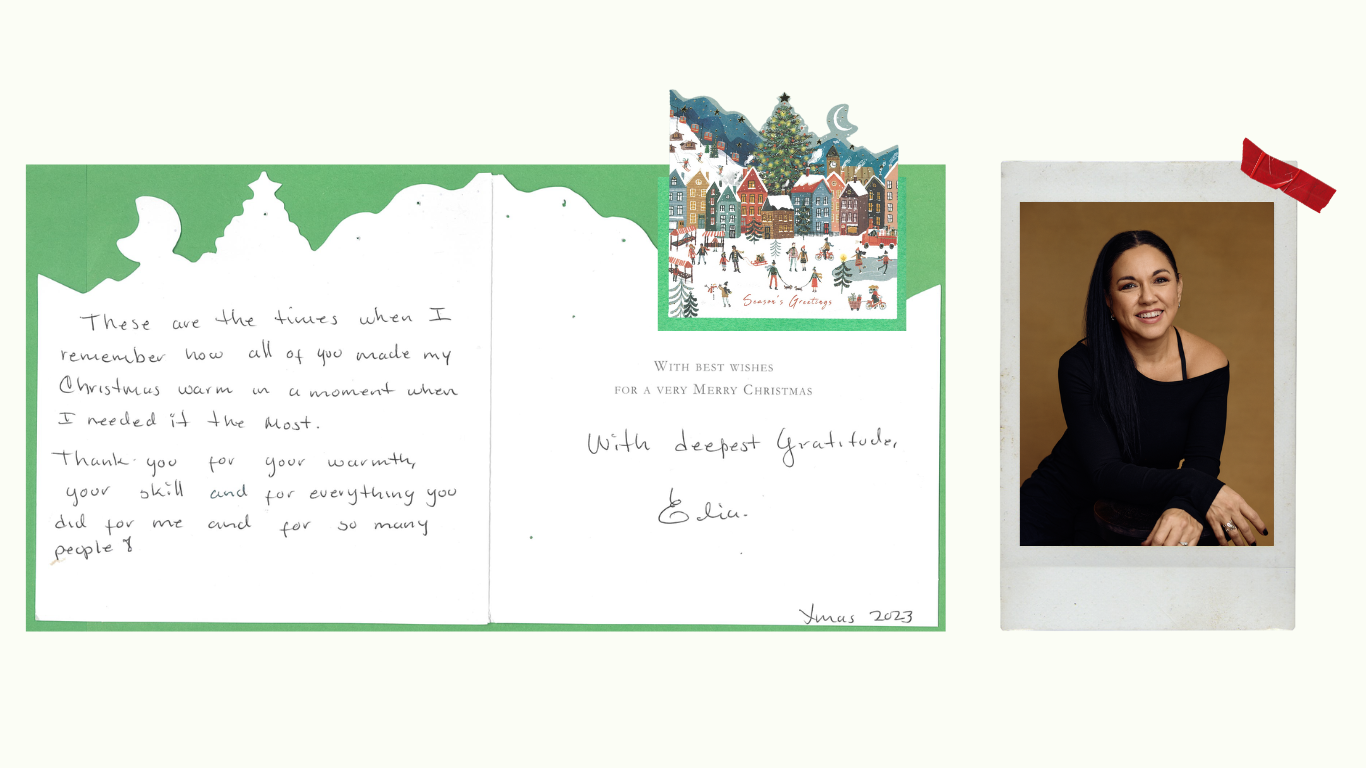 These are the times when I
remember how all of you made my
Christmas warm in a moment when
I needed it the most.
Thank you for your warmth,
your skill and for everything you
did for me and for so many
people
Season's Greetings
With best wishes
for a very Merry Christmas
With deepest Gratitude,
Xmas 2023